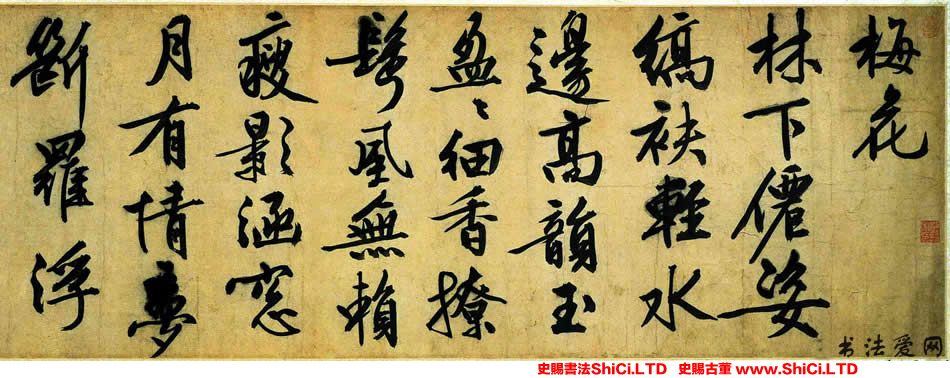 梅花
林下僊姿
縞袂輕水
邊高韻玉
盈〻細香撩
鬢風無賴
瘦影涵窓
月有情夢
斷羅浮
书法爱网
史賜書法ShiCi.LTD 史賜古董 www.ShiCi.LTD